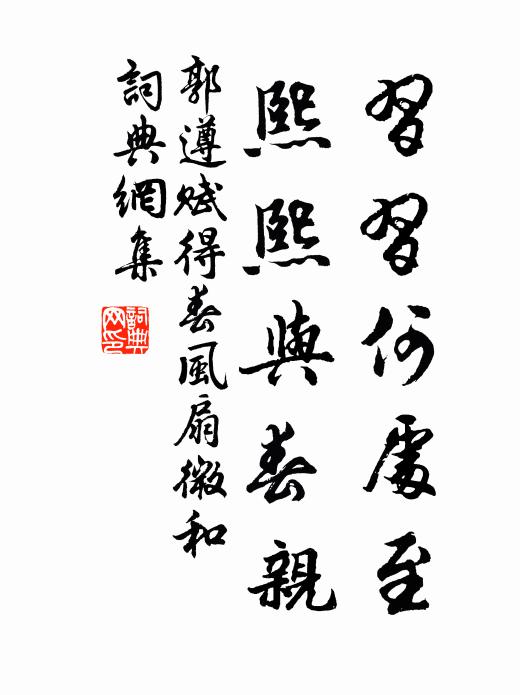 習習何處至
熙熙與春親
郭遵賦得春風扇微和
詞典網集
詞典
网印